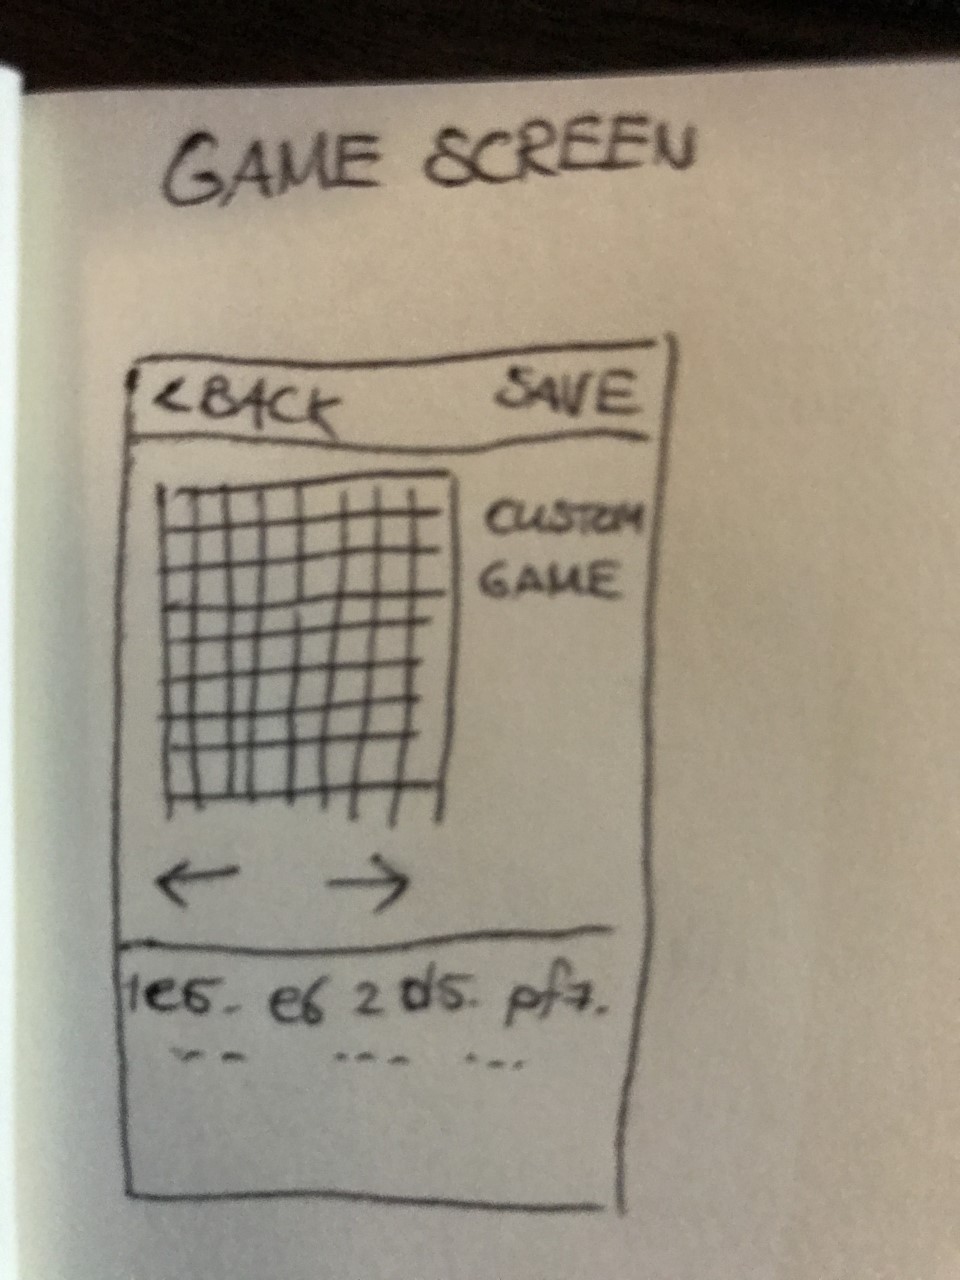 GAME SCREEN
< BACK SAVE
CUSTOM
GAME
1e5. e6 2 d5. pf7.